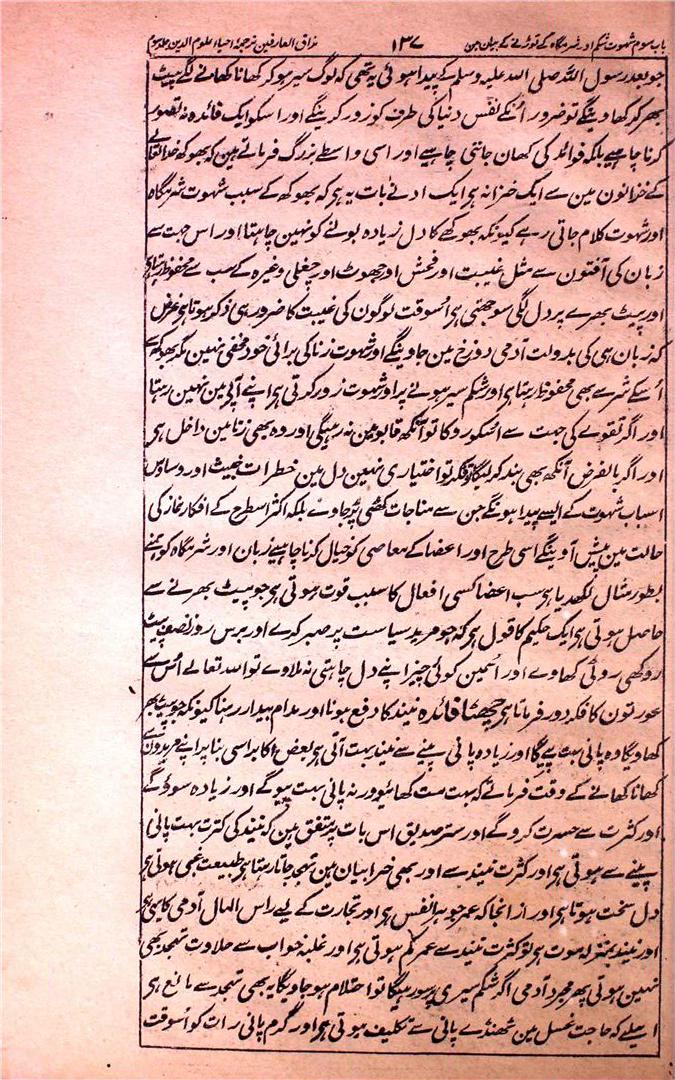 باب سوم شہوت شکم اور شرمگاہ کے توڑنے کے بیان مین ۱۳۷ مذاق العارفین ترجمۂ احیاء علوم الدین جلد سوم
جو بعد رسول اللہ صلی اللہ علیہ وسلم کے پیدا ہوئی یہ تھی کہ لوگ سیر ہو کر کھانا کھانے لگے پیٹ
بھر کر کھاوینگے تو ضرور اُنکے نفس دنیا کی طرف کو زور کرینگے اور اسکو ایک فائدہ نہ تصور
کرنا چاہیے بلکہ فوائد کی کھان جاننی چاہیے اور اسی واسطے بزرگ فرماتے ہین کہ بھوکھ خدا تعالے
کے خزانون مین سے ایک خزانہ ہی ایک ادنے بات یہ ہی کہ بھوکھ کے سبب شہوت شرمگاہ
اور شہوت کلام جاتی رہے کیونکہ بھوکھے کا دل زیادہ بولنے کو نہین چاہتا اور اس جہت سے
زبان کی آفتون سے مثل غیبت اور فحش اور جھوٹ اور چغلی وغیرہ کے سب سے محفوظ رہتا ہی
اور پیٹ بھرے پر دل لگی سوجھتی ہی اُسوقت لوگون کی غیبت کا ضرور ہی ذکر ہوتا ہی غرض
کہ زبان ہی کی بدولت آدمی دوزخ مین جاوینگے اور شہوت زنا کی برائی خود مخفی نہین مگر بھوکھ سے
اُسکے شر سے بھی محفوظ رہتا ہی اور شکم سیر ہونے پر اور شہوت زور کرتی ہی اپنے آپے مین نہین رہتا
اور اگر تقوے کی جہت سے اُسکو روکا تو آنکھ قابو مین نہ رہیگی اور وہ بھی زنا مین داخل ہی
اور اگر بالفرض آنکھ بھی بند کر لیگا تو فکر تو اختیاری نہین دل مین خطرات خبیث اور وساوس
اسباب شہوت کے ایسے پیدا ہونگے جن سے مناجات کھٹی پڑ جاوے بلکہ اکثر اسطرح کے افکار نماز کی
حالت مین پیش آوینگے اسی طرح اور اعضا کے معاصی کو خیال کرنا چاہیے زبان اور شرمگاہ کو ہمنے
بطور مثال لکھدیا ہی سب اعضا کسی افعال کا سبب قوت ہوتی ہی جو پیٹ بھرنے سے
حاصل ہوتی ہی ایک حکیم کا قول ہی کہ جو مرید سیاست پر صبر کرے اور برس روز نصف پیٹ
روکھی روٹی کھاوے اور اُسمین کوئی چیز اپنے دل چاہتی نہ ملاوے تو اللہ تعالے اُس سے
عورتون کا فکر دور فرماتا ہی چھٹا فائدہ نیند کا دفع ہونا اور مدام بیدار رہنا کیونکہ جو پیٹ بھر
کھاویگا وہ پانی بہت پیے گا اور زیادہ پانی پینے سے نیند بہت آتی ہی بعض اکابر اسی بنا پر اپنے مریدون سے
کھانا کھانے کے وقت فرماتے کہ بہت مت کھائیو ورنہ پانی بہت پیو گے اور زیادہ سوؤ گے
اور کثرت سے حسرت کرو گے اور ستر صدیق اس بات پر متفق ہین کہ نیند کی کثرت بہت پانی
پینے سے ہوتی ہی اور کثرت نیند سے اور بھی خرابیان ہین تہجد جاتا رہتا ہی طبیعت غبی ہوتی ہی
دل سخت ہوتا ہی اور از انجا کہ عمر جوہر نفیس ہی اور تجارت کے لیے راس المال آدمی کا یہی ہی
اور نیند بمنزلہ موت ہی تو کثرت نیند سے عمر کم ہوتی ہی اور غلبہ خواب سے حلاوت تہجد بھی
نہین ہوتی پھر مجرد آدمی اگر شکم سیری پر سو رہیگا تو احتلام ہو جاویگا یہ بھی تہجد سے مانع ہی
اسلیے کہ حاجت غسل مین ٹھنڈے پانی سے تکلیف ہوتی ہی اور گرم پانی رات کو اُسوقت